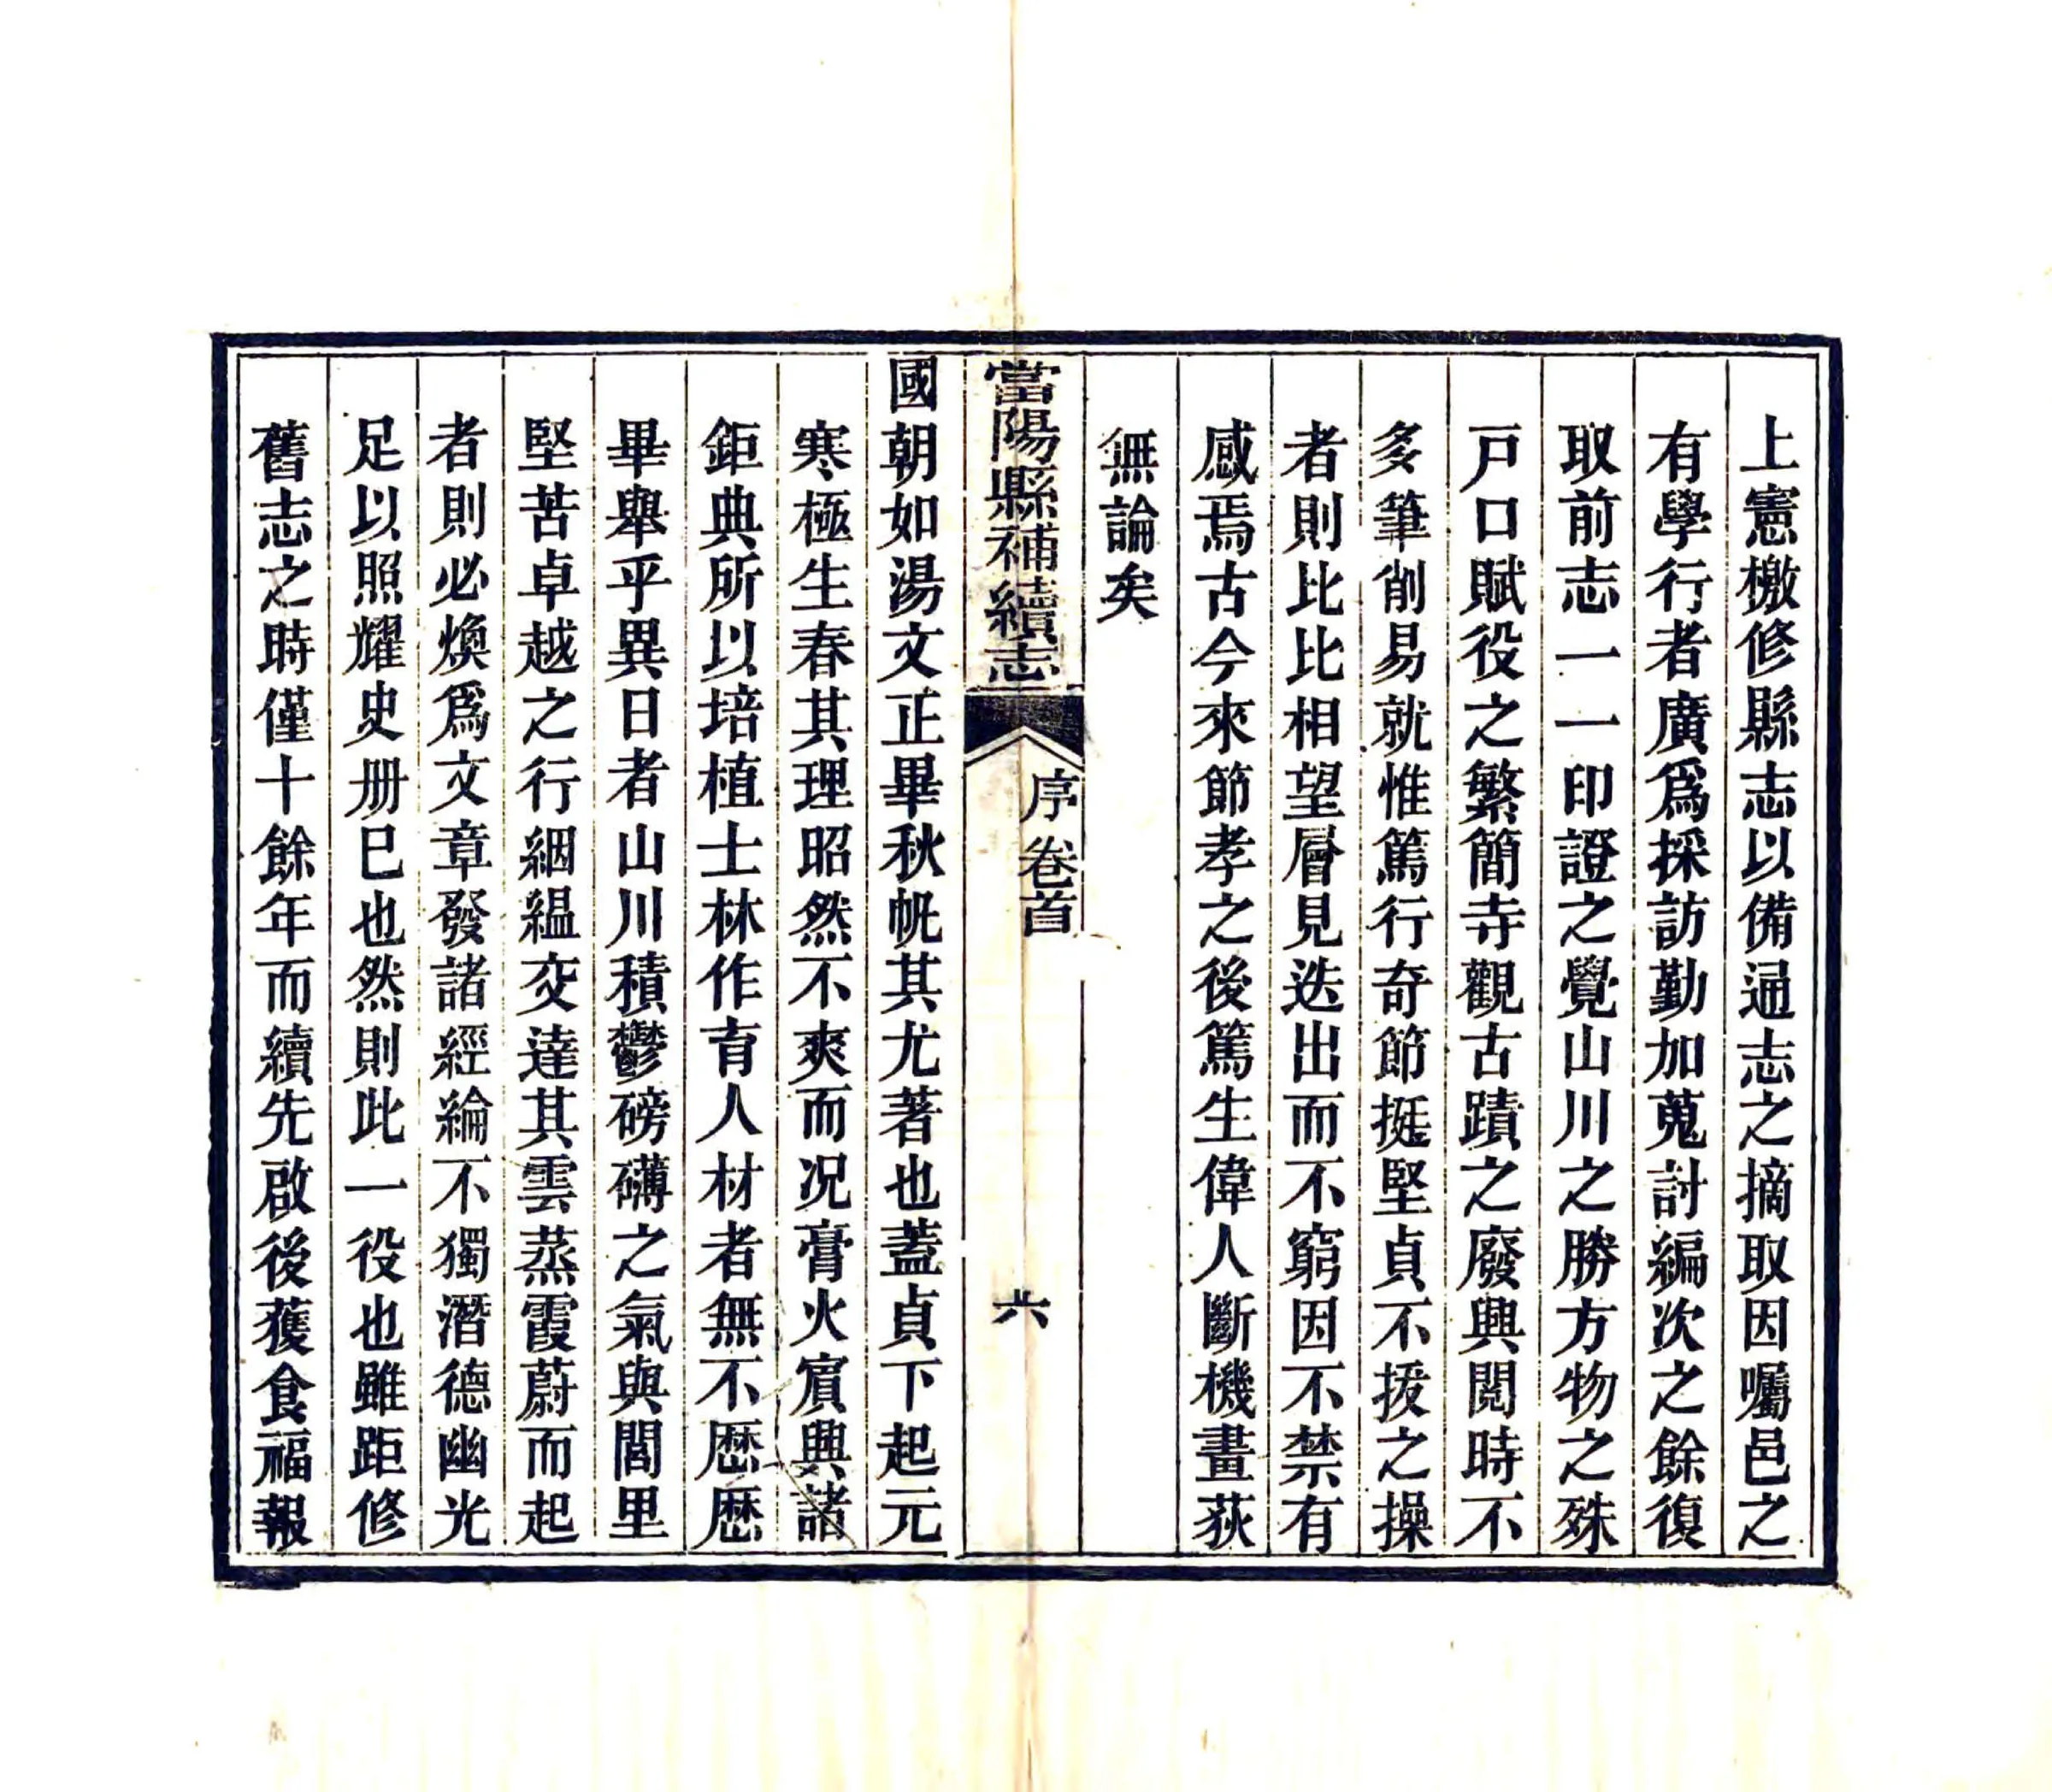 上憲檄修縣志以備通志之摘取因囑邑之
有學行者廣爲採訪勤加蒐討編次之餘復
取前志一一印證之覺山川之勝方物之殊
戸口賦役之繁簡寺觀古蹟之廢興閲時不
多筆削易就惟篤行奇節挺堅貞不拔之操
者則比比相望層見迭出而不窮因不禁有
感焉古今來節孝之後篤生偉人斷機畫荻
無論矣
當陽縣補續志 序 卷首 六
國朝如湯文正畢秋帆其尤著也蓋貞下起元
寒極生春其理昭然不爽而况膏火賔興諸
鉅典所以培植士林作育人材者無不歴歴
畢舉乎異日者山川積鬱磅礴之氣與閭里
堅苦卓越之行絪緼交達其雲蒸霞蔚而起
者則必煥爲文章發諸經綸不獨潛德幽光
足以照耀史册巳也然則此一役也雖距修
舊志之時僅十餘年而續先啟後獲食福報